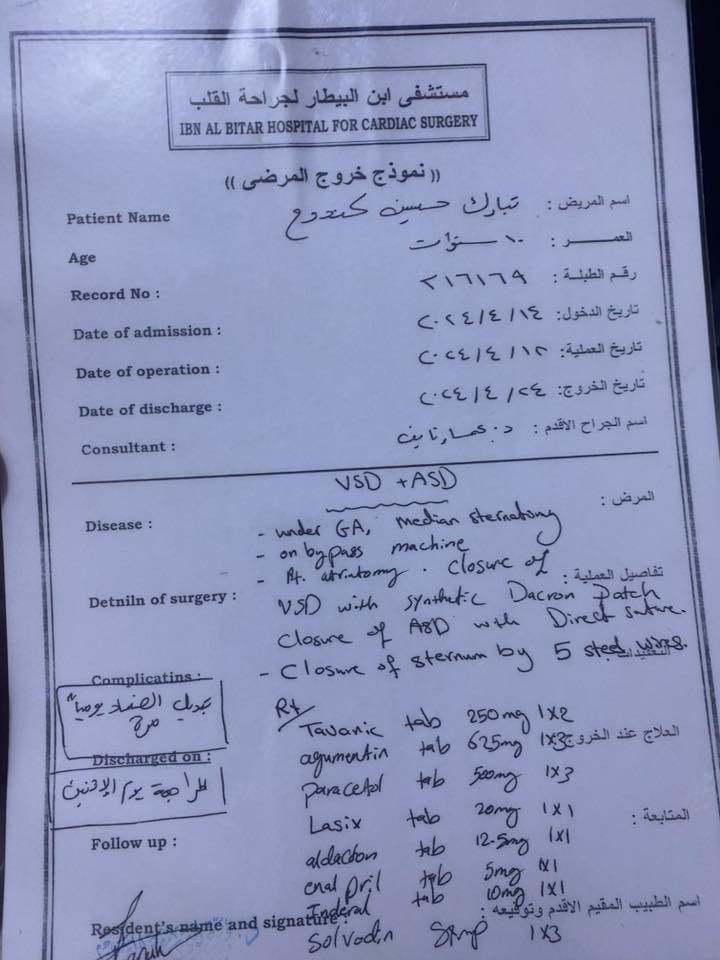 مستشفى ابن البيطار لجراحة القلب
IBN AL BITAR HOSPITAL FOR CARDIAC SURGERY
(( نموذج خروج المرضى ))
Patient Name اسم المريض : تبارك حسين
Age العمـــر : ١٠ سنوات
Record No : رقم الطبلة : ٢١٦١٦٩
Date of admission : تاريخ الدخول: ٢٠٢٤/٤/١٤
Date of operation : تاريخ العملية: ٢٠٢٤/٤/١٢
Date of discharge : تاريخ الخروج: ٢٠٢٤/٤/٢٤
Consultant : اسم الجراح الاقدم : د. عمار نايف
VSD + ASD
Disease : المرض :
- under GA, median sternatomy
- on bypass machine
- Rt. atriatomy . closure of
Detniln of surgery : تفاصيل العملية :
VSD with synthetic Dacron patch
closure of ASD with Direct suture.
Complicatins : - closure of sternum by 5 steel wires.
تبديل الضماد يومياً
Rt/
Tavanic tab 250mg 1x2
Discharged on : العلاج عند الخروج
agumentin tab 625mg 1x3
المراجعة يوم الإثنين
paracetol tab 500mg 1x3
Lasix tab 20mg 1x1
Follow up : المتابعة :
aldacton tab 12.5mg 1x1
enal pril tab 5mg 1x1
Inderal tab 10mg 1x1
Resident's name and signature : اسم الطبيب المقيم الاقدم وتوقيعه :
Solvodin syrup 1x3